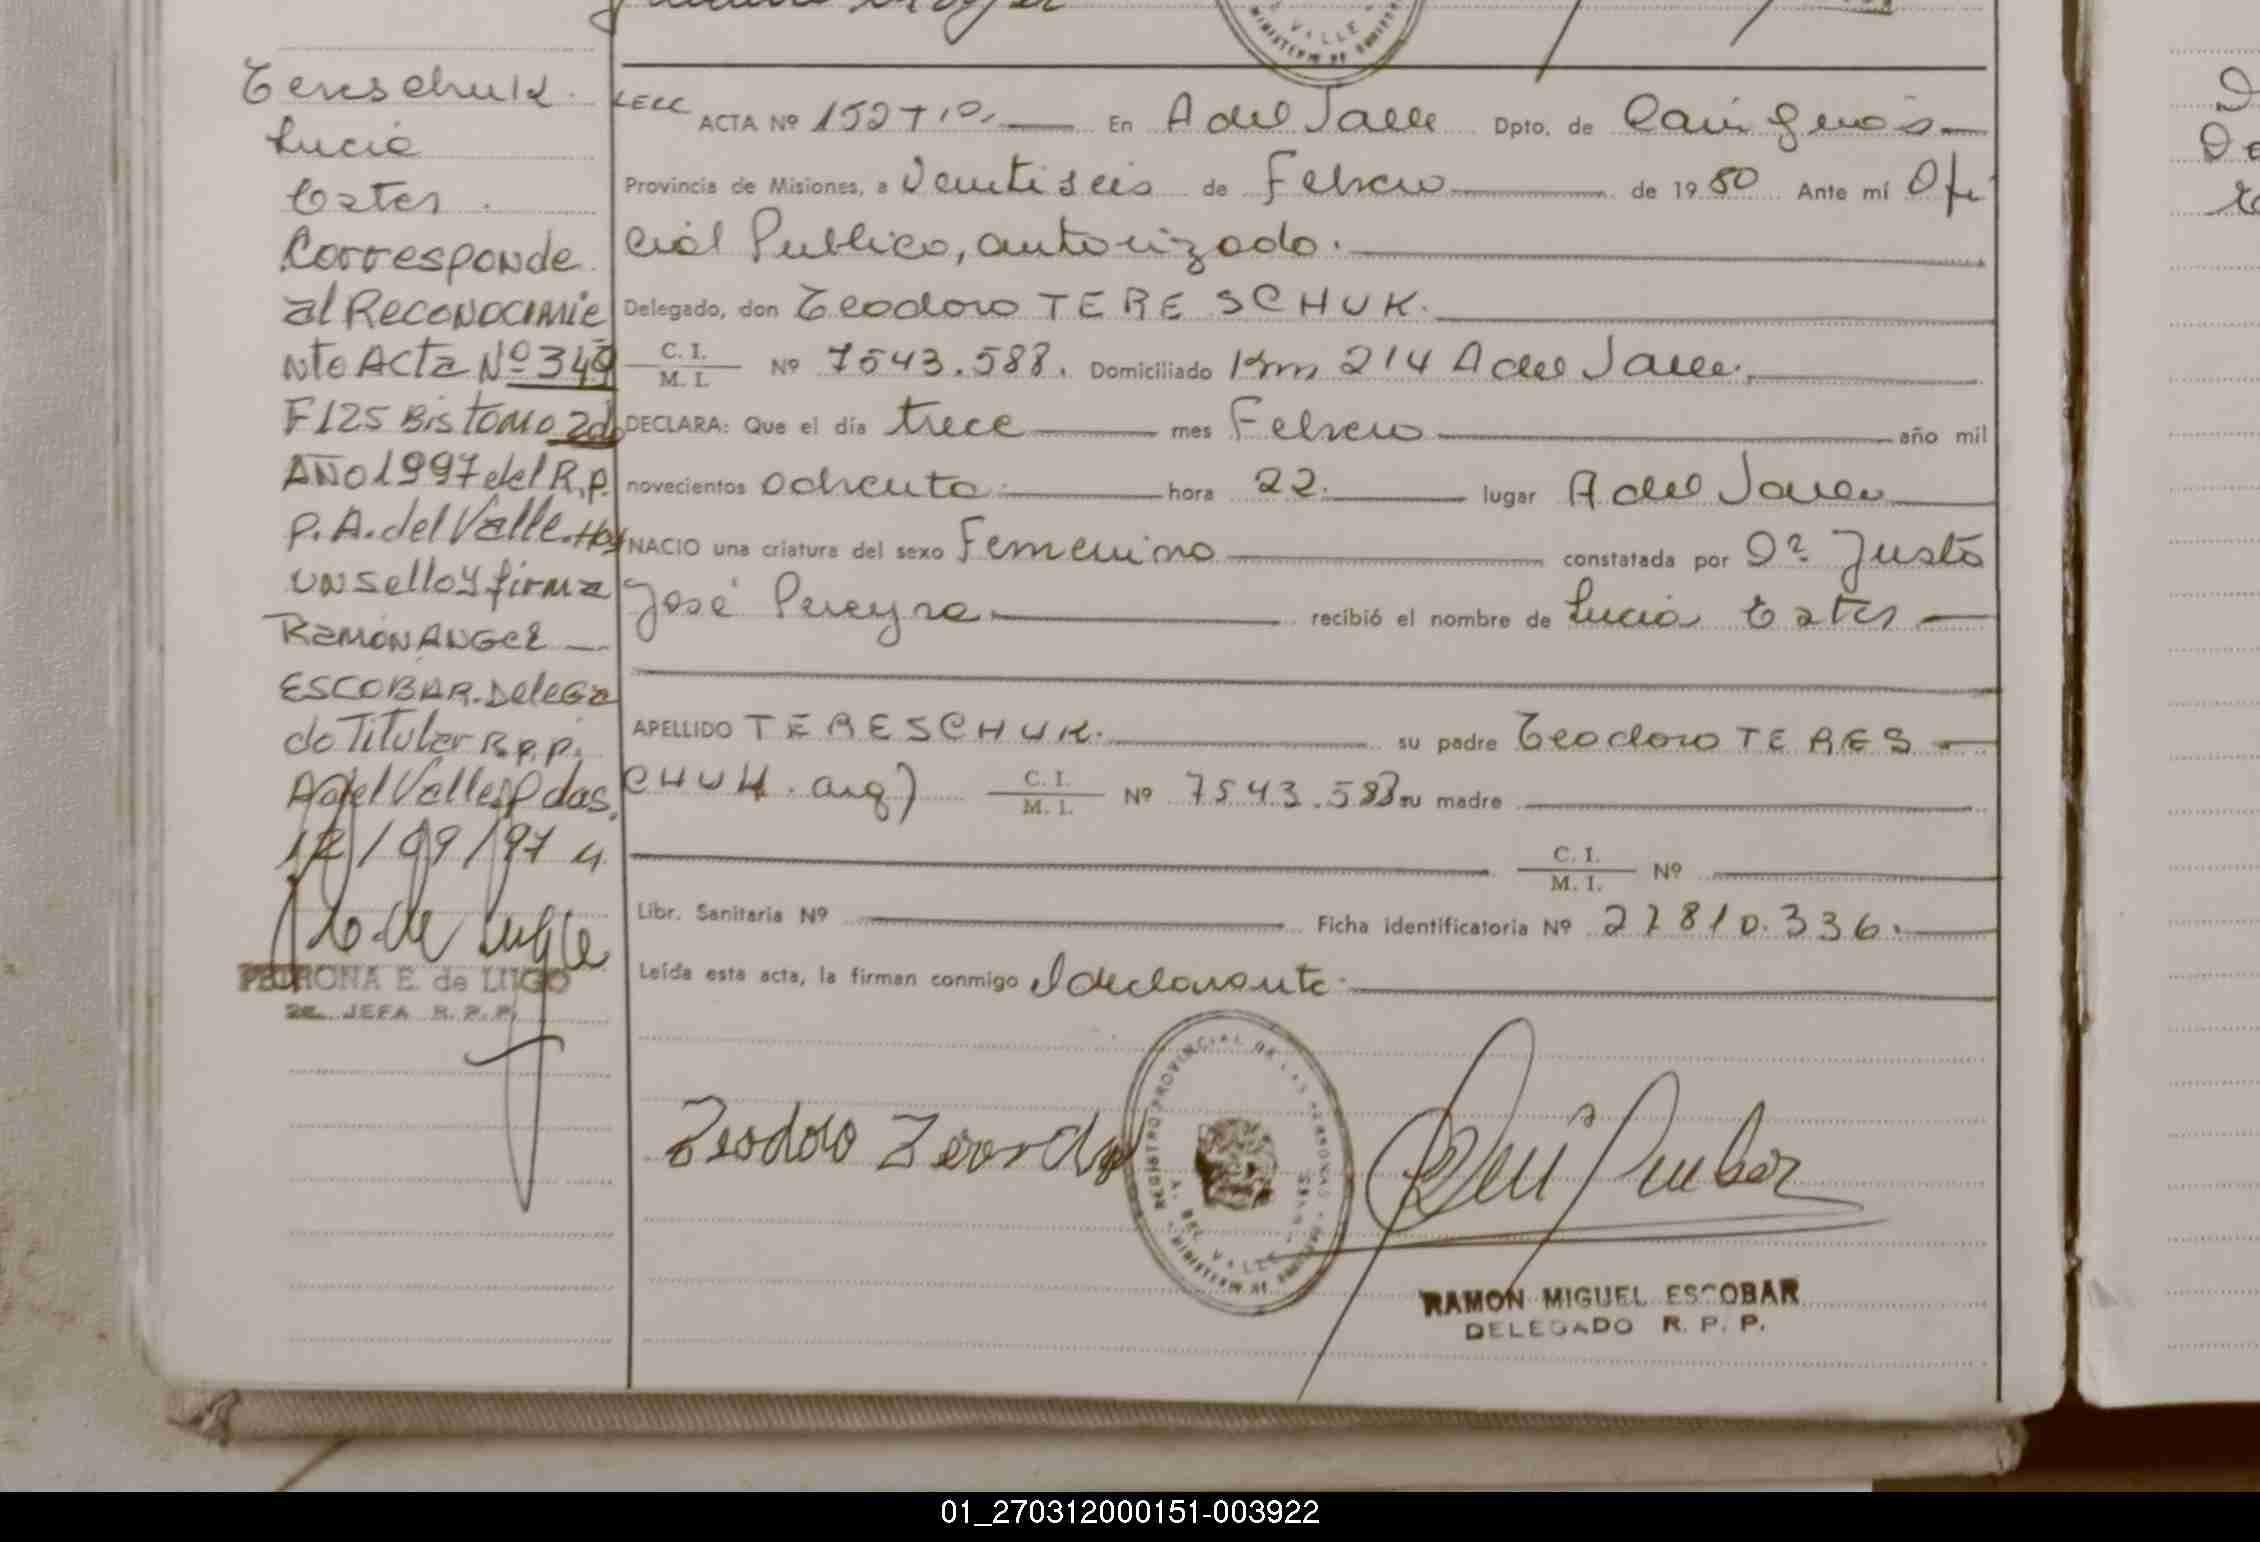 Tereschuk
Lucia
Ester.
Corresponde
al Reconocimie
nto Acta Nº 349
F 125 Bis Tomo 2do
AÑO 1997 del R.P.
P. A. del Valle. Hay
un sello y firma
RAMON ANGEL
ESCOBAR. Delega
do Titular R.P.P.
A del Valle Pdas.
12/09/97
PETRONA E. de LUGO
JEFA R. P. P.
VALLE
ACTA Nº 152 T. En A del Valle Dpto. de Cainguás
Provincia de Misiones, a Veintiseis de Febrero de 1980 Ante mí Ofi
cial Publico, autorizado.
Delegado, don Teodoro TERESCHUK.
C. I.
M. I. Nº 7543.588. Domiciliado Km 214 A del Valle.
DECLARA: Que el día trece mes Febrero año mil
novecientos ochenta hora 22. lugar A del Valle
NACIO una criatura del sexo Femenino constatada por Dº Justo
José Pereyra recibió el nombre de Lucia Ester
APELLIDO TERESCHUK. su padre Teodoro TERES
CHUK. arg) C. I.
M. I. Nº 7543.588 su madre
C. I.
M. I. Nº
Libr. Sanitaria Nº Ficha identificatoria Nº 27810.336.
Leída esta acta, la firman conmigo el declarante.
Teodoro
REGISTRO PROVINCIAL DE LAS PERSONAS
A. DEL VALLE
RAMON MIGUEL ESCOBAR
DELEGADO R. P. P.
01_270312000151-003922